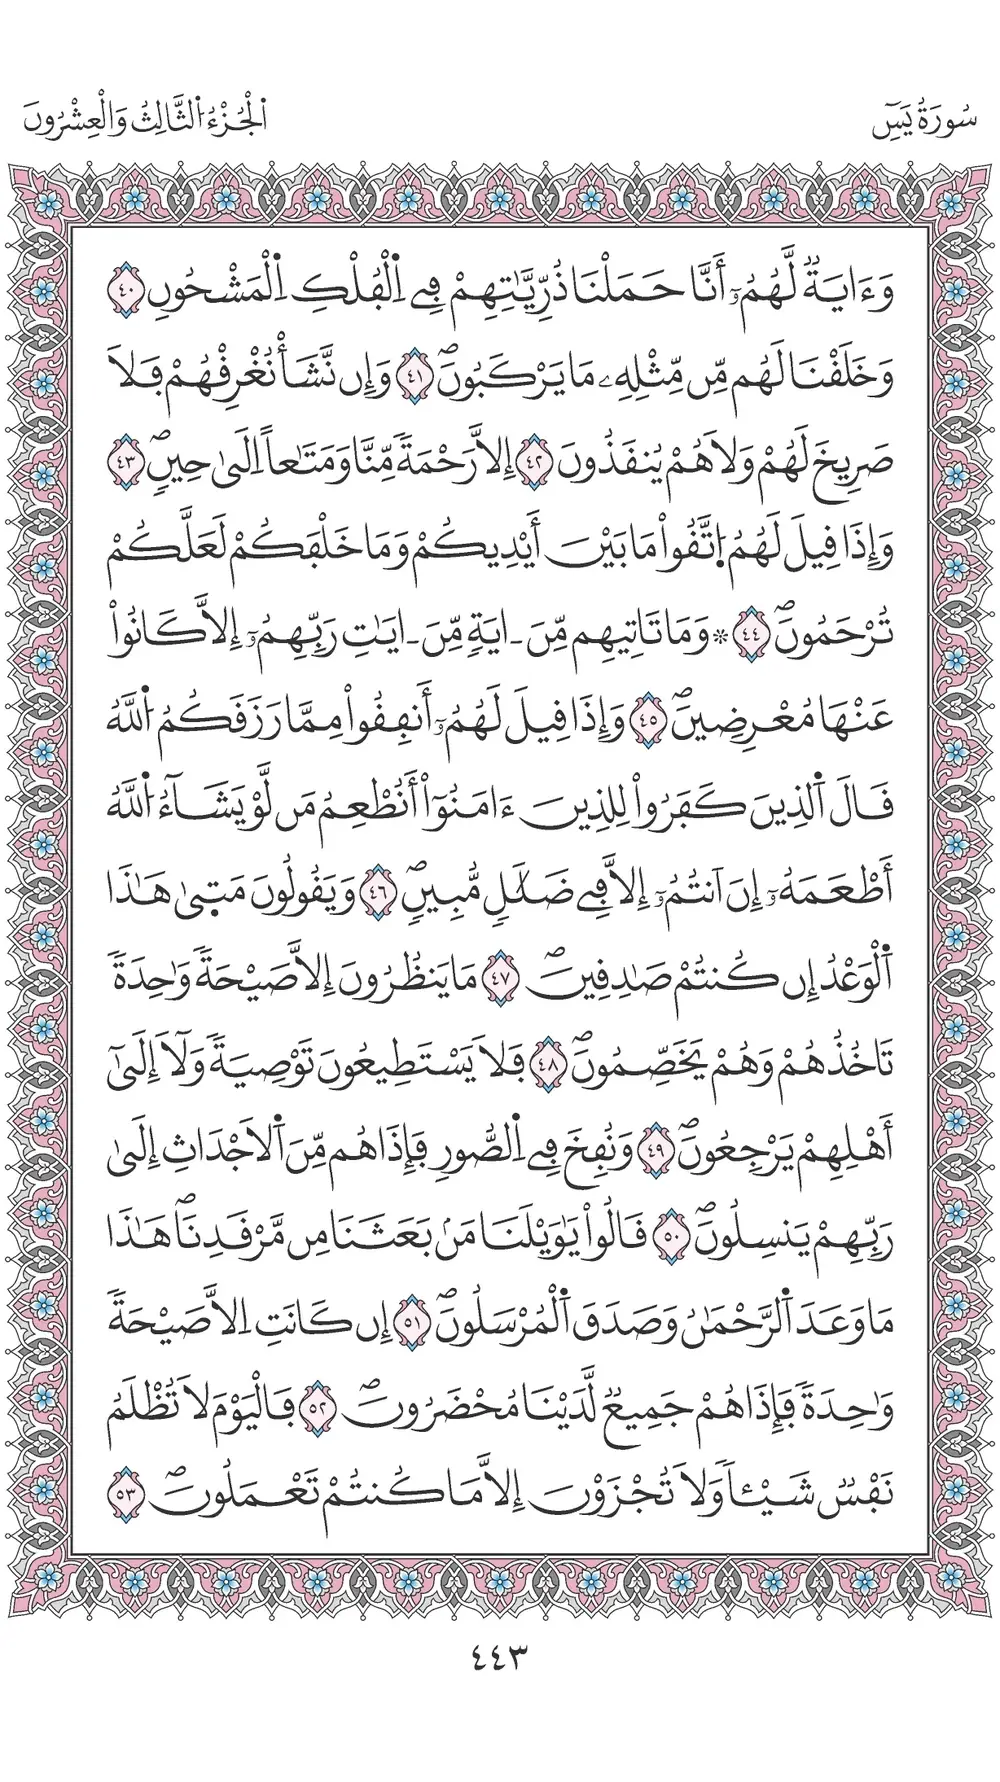 سُورَةُ يَسِٓ
اَ۬لْجُزْءُ اُ۬لثَّالِثُ وَالْعِشْرُونَ
وَءَايَةٞ لَّهُمُۥٓ أَنَّا حَمَلْنَا ذُرِّيَّٰتِهِمْ فِے اِ۬لْفُلْكِ اِ۬لْمَشْحُونِ ٤٠
وَخَلَقْنَا لَهُم مِّن مِّثْلِهِۦ مَا يَرْكَبُونَۖ ٤١ وَإِن نَّشَأْ نُغْرِقْهُمْ فَلَا
صَرِيخَ لَهُمْ وَلَا هُمْ يُنقَذُونَ ٤٢ إِلَّا رَحْمَةٗ مِّنَّا وَمَتَٰعاً اِلَىٰ حِينٖۖ ٤٣
وَإِذَا قِيلَ لَهُمُ اُ۪تَّقُواْ مَا بَيْنَ أَيْدِيكُمْ وَمَا خَلْفَكُمْ لَعَلَّكُمْ
تُرْحَمُونَۖ ٤٤ ۞ وَمَا تَاتِيهِم مِّنَ ـ ايَةٖ مِّنَ ـ ايَٰتِ رَبِّهِمُۥٓ إِلَّا كَانُواْ
عَنْهَا مُعْرِضِينَۖ ٤٥ وَإِذَا قِيلَ لَهُمُۥٓ أَنفِقُواْ مِمَّا رَزَقَكُمُ اُ۬للَّهُ
قَالَ اَ۬لذِينَ كَفَرُواْ لِلذِينَ ءَامَنُوٓاْ أَنُطْعِمُ مَن لَّوْ يَشَآءُ اُ۬للَّهُ
أَطْعَمَهُۥٓ إِنَ اَنتُمُۥٓ إِلَّا فِے ضَلَٰلٖ مُّبِينٖۖ ٤٦ وَيَقُولُونَ مَتَىٰ هَٰذَا
اَ۬لْوَعْدُ إِن كُنتُمْ صَٰدِقِينَۖ ٤٧ مَا يَنظُرُونَ إِلَّا صَيْحَةٗ وَٰحِدَةٗ
تَاخُذُهُمْ وَهُمْ يَخَصِّمُونَۖ ٤٨ فَلَا يَسْتَطِيعُونَ تَوْصِيَةٗ وَلَآ إِلَىٰٓ
أَهْلِهِمْ يَرْجِعُونَۖ ٤٩ وَنُفِخَ فِے اِ۬لصُّورِ فَإِذَا هُم مِّنَ اَ۬لَاجْدَاثِ إِلَىٰ
رَبِّهِمْ يَنسِلُونَۖ ٥٠ قَالُواْ يَٰوَيْلَنَا مَنۢ بَعَثَنَا مِن مَّرْقَدِنَاۖ هَٰذَا
مَا وَعَدَ اَ۬لرَّحْمَٰنُ وَصَدَقَ اَ۬لْمُرْسَلُونَۖ ٥١ إِن كَانَتِ اِلَّا صَيْحَةٗ
وَٰحِدَةٗ فَإِذَا هُمْ جَمِيعٞ لَّدَيْنَا مُحْضَرُونَۖ ٥٢ فَالْيَوْمَ لَا تُظْلَمُ
نَفْسٞ شَيْـٔاٗ وَلَا تُجْزَوْنَ إِلَّا مَا كُنتُمْ تَعْمَلُونَۖ ٥٣
٤٤٣